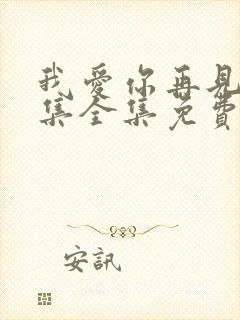 我愛你再見
集全集免費
安訊